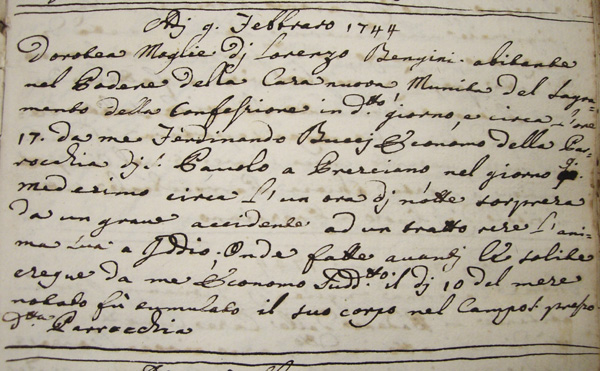 Adj 9. Febbraro 1744
Dorotea Moglie dj Lorenzo Bengini abitante
nel Podere della Casanuova Munita del Sagra=
mento della Confessione in d.tto giorno, e circa l'ore
17. da me Ferdinando Buccj Economo della Par=
rocchia dj S. Pauolo a Presciano nel giorno
medesimo circa l'un ora dj notte sorpresa
da un graue accidente ad un tratto rese l'ani=
ma sua a Iddio. Onde fatte auantj le solite
esequie da me Economo Sudd.tto il dj 10 del mese
notato fù tumulato il suo corpo nel Campos.t presso
d.tta Parrocchia